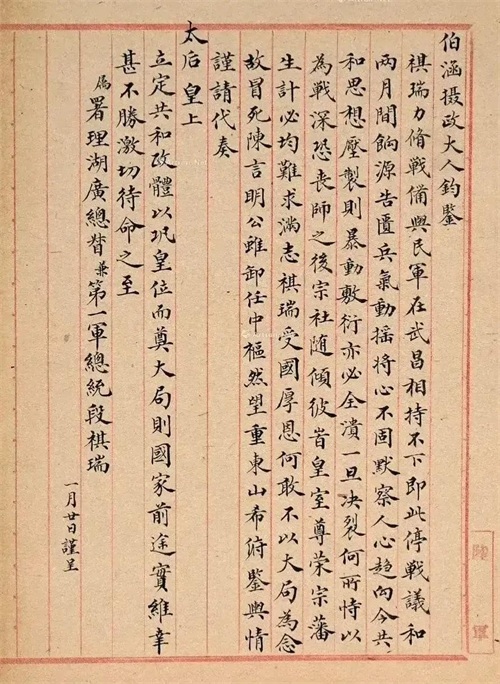 伯涵摄政大人鈞鑒
祺瑞力脩戰備與民軍在武昌相持不下即此停戰議和
兩月間餉源告匱兵氣動搖將心不固默察人心趋向今共
和思想壓製則暴動敷衍亦必全潰一旦决裂何所恃以
為戰深恐喪師之後宗社随傾彼旹皇室尊荣宗藩
生計必均難求滿志祺瑞受國厚恩何敢不以大局為念
故冒死陳言明公雖卸任中樞然望重東山希俯鑒輿情
謹請代奏
太后皇上
立定共和政體以巩皇位而奠大局則國家前途實維幸
甚不勝激切待命之至
署理湖廣總督兼第一軍總統段祺瑞
一月廿日謹呈
陸軍